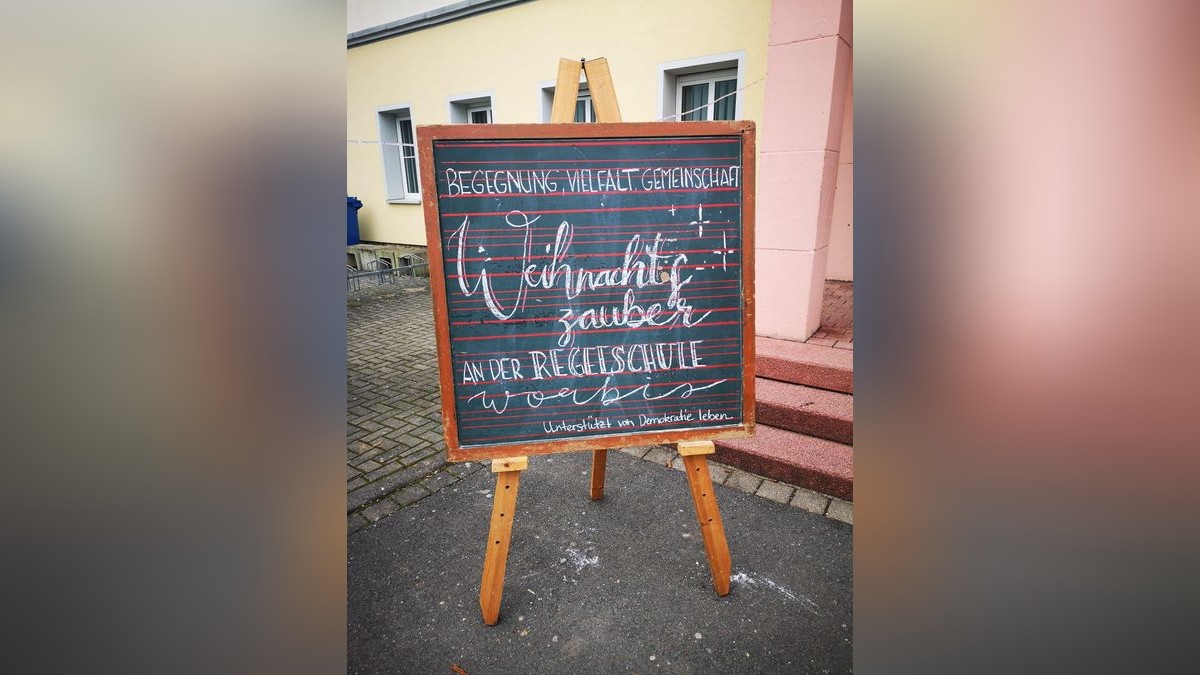 BEGEGNUNG, VIELFALT GEMEINSCHAFT
Weihnachts
zauber
AN DER REGELSCHULE
worbis
Unterstützt von Demokratie leben